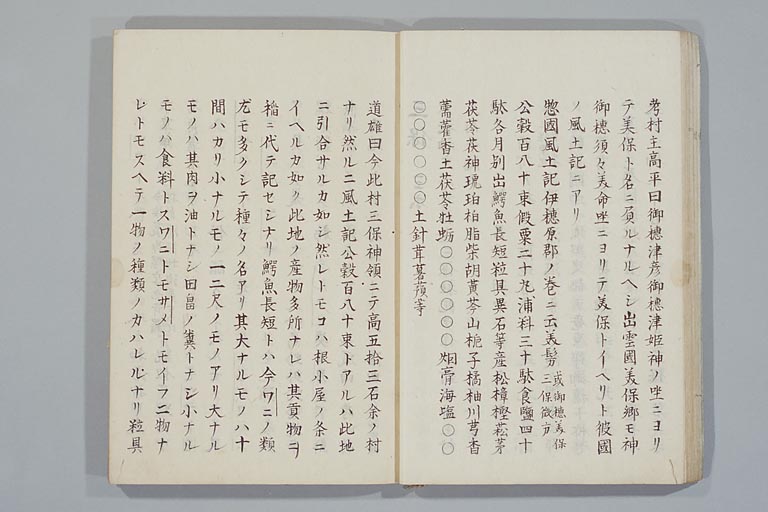 考村主高平曰御穗津彦御穗津姫神ノ坐ニヨリ
テ美保ト名ニ負ルナルヘシ出雲國美保郷モ神
御穗須々美命坐ニヨリテ美保トイヘリト彼國
ノ風土記ニアリ
惣國風土記伊穗原郡ノ巻ニ云美髣或御穗美保三保微方
公穀百八十束假粟二十丸浦料三十駄食鹽四十
駄各月別出鰐魚長短粒具異石等産松樟樫菘茅
茯苓茯神瑰珀柏脂柴胡黄芩山梔子橘柚川芎香
藁藿香土茯苓牡蛎〇〇〇〇〇〇畑膏海塩〇〇
〇〇〇〇〇〇土針茸蔓荊等
道雄曰今此村三保神領ニテ高五拾三石余ノ村
ナリ然ルニ風土記公穀百八十束トアルハ此地
ニ引合サルカ如シ然レトモコハ根小屋ノ条ニ
イヘルカ如ク此地ノ産物多所ナレハ其貢物ヲ
稲ニ代テ記セシナリ鰐魚長短トハ今ワニノ類
尤モ多クシテ種々ノ名アリ其大ナルモノハ十
間ハカリ小ナルモノ一二尺ノモノアリ大ナル
モノハ其肉ヲ油トナシ田畠ノ糞トナシ小ナル
モノハ食料トスワニトモサメトモイフ二物ナ
レトモスヘテ一物ノ種類ノカハレルナリ粒具